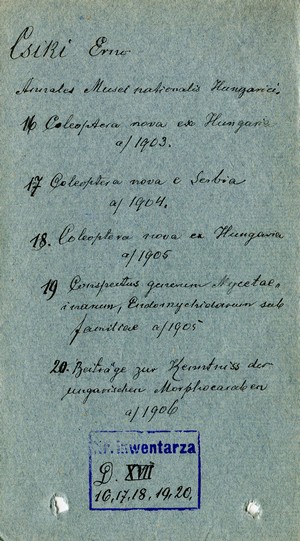 Csiki Erno
Annales Musei nationalis Hungarici.
16 Coleoptera nova ex Hungaria
a/ 1903.
17 Coleoptera nova e Serbia
a/ 1904.
18. Coleoptera nova ex Hungaria
a/ 1905
19 Conspectus generum Mycetae,
inarum, Endomychidarum sub
familiae a/ 1905
20. Beiträge zur Kenntniss der
ungarischen Morphocaraben
a/ 1906
Nr. inwentarza
D. XVII
16, 17, 18, 19, 20.